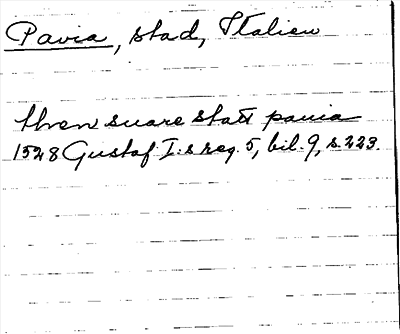 Pavia, stad, Italien
thren suare statt pauia
1528 Gustaf I:s reg. 5, bil. 9, s. 223.